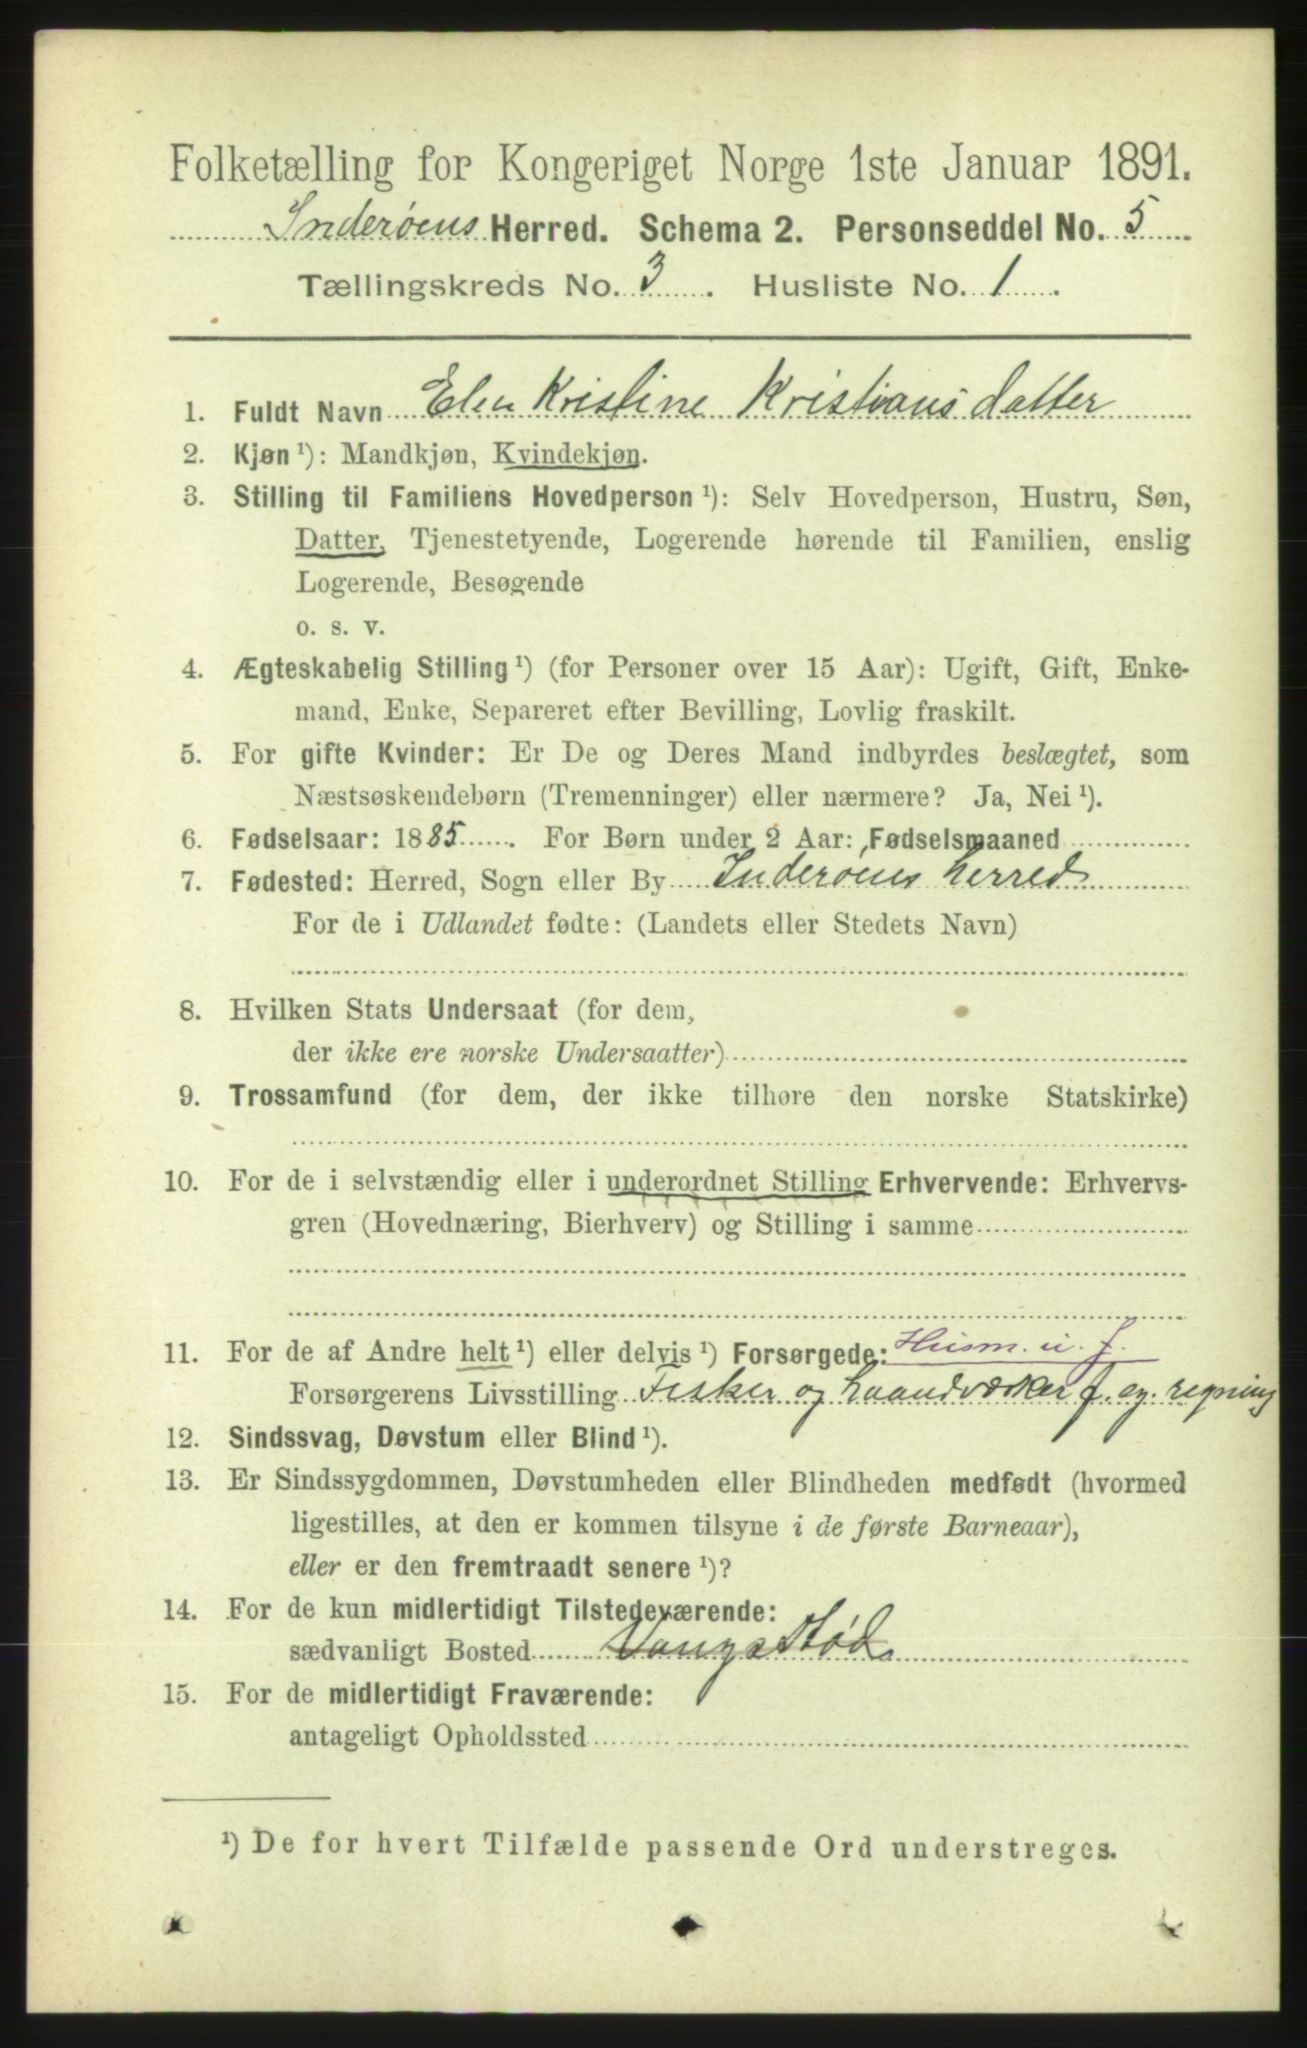 Folketælling for Kongeriget Norge 1ste Januar 1891.
Inderøens Herred. Schema 2. Personseddel No. 5
Tællingskreds No. 3. Husliste No. 1.
1. Fuldt Navn Elen Kristine Kristiansdatter
2. Kjøn ¹): Mandkjøn, Kvindekjøn.
3. Stilling til Familiens Hovedperson ¹): Selv Hovedperson, Hustru, Søn,
Datter, Tjenestetyende, Logerende hørende til Familien, enslig
Logerende, Besøgende
o. s. v.
4. Ægteskabelig Stilling ¹) (for Personer over 15 Aar): Ugift, Gift, Enke-
mand, Enke, Separeret efter Bevilling, Lovlig fraskilt.
5. For gifte Kvinder: Er De og Deres Mand indbyrdes beslægtet, som
Næstsøskendebørn (Tremenninger) eller nærmere? Ja, Nei ¹).
6. Fødselsaar: 1885. For Børn under 2 Aar: Fødselsmaaned
7. Fødested: Herred, Sogn eller By Inderøens herred
For de i Udlandet fødte: (Landets eller Stedets Navn)
8. Hvilken Stats Undersaat (for dem,
der ikke ere norske Undersaatter)
9. Trossamfund (for dem, der ikke tilhøre den norske Statskirke)
10. For de i selvstændig eller i underordnet Stilling Erhvervende: Erhvervs-
gren (Hovednæring, Bierhverv) og Stilling i samme
11. For de af Andre helt ¹) eller delvis ¹) Forsørgede: Husm. u. J.
Forsørgerens Livsstilling Fisker og haandværker f. eg. regning
12. Sindssvag, Døvstum eller Blind ¹).
13. Er Sindssygdommen, Døvstumheden eller Blindheden medfødt (hvormed
ligestilles, at den er kommen tilsyne i de første Barneaar),
eller er den fremtraadt senere ¹)?
14. For de kun midlertidigt Tilstedeværende:
sædvanligt Bosted Vangstød
15. For de midlertidigt Fraværende:
antageligt Opholdssted
¹) De for hvert Tilfælde passende Ord understreges.